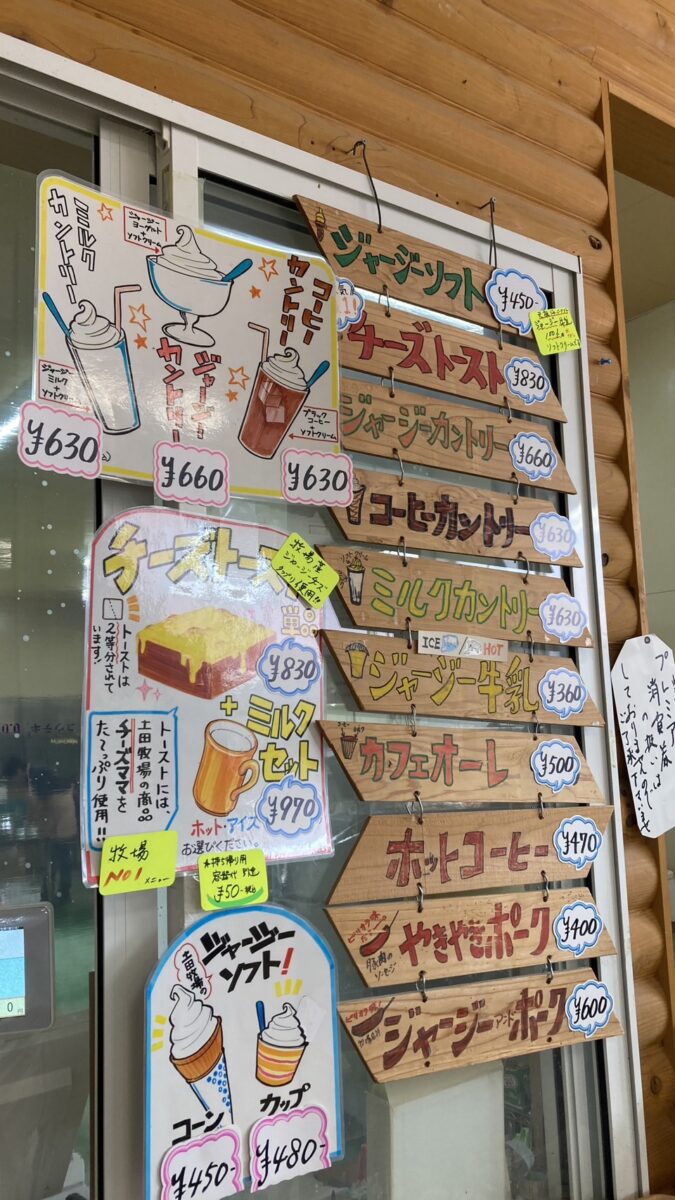 ミルク
カントリー
ジャージー
ヨーグルト
+
ソフトクリーム
コーヒー
カントリー
ジャージー
カントリー
ジャージー
ミルク
+
ソフトクリーム
ブラック
コーヒー
+
ソフトクリーム
¥630
¥660
¥630
チーズトースト
単品
牧場産
ジャージーチーズ
タップリ使用!!
トーストは
2等分されて
います!
¥830
+ミルク
セット
¥970
トーストには、
土田牧場の商品
チーズママを
たーっぷり使用!!
ホット・アイス
お選びください。
牧場
No1メニュー
お持ち帰り用
容器代 別途
¥50-税込
土田牧場の
ジャージー
ソフト!
コーン
カップ
¥450-
¥480-
ジャージーソフト
¥450-
チーズトースト
¥830
ジャージーカントリー
¥660
コーヒーカントリー
¥630
ミルクカントリー
¥630
ICE / HOT
ジャージー牛乳
¥360
カフェオーレ
¥500
ホットコーヒー
¥470
ピリッと味
豚肉の
ソーセージ
やきやきポーク
¥400
ジャージーアンドポーク
¥600
プレミアム
商品券
消
の扱いは
しておりません。
ご了承下さいませ
0円